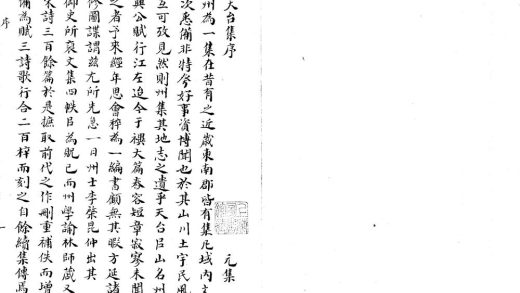 天台集序
元集
州為一集在昔有之近歲東南郡皆有集凡域內文
次悉備非特夸好事資博聞也於其山川土宇民風
互可攷見然則州集其地志之遺乎天台㠯山名州
興公賦行江左迨今千禩大篇舂容短章寂寥未聞
之者予來經年思會稡為一編書顧無其暇方延諸
修圖諜謂茲尤所先急一日州士李棨昆仲出其
御史所裒文集四帙㠯為貺已而州學諭林師蒧又
詩三百餘篇於是摭取前代之作刪重補佚而增
備為賦三詩歌行合二百梓而刻之自餘續集傳焉
序